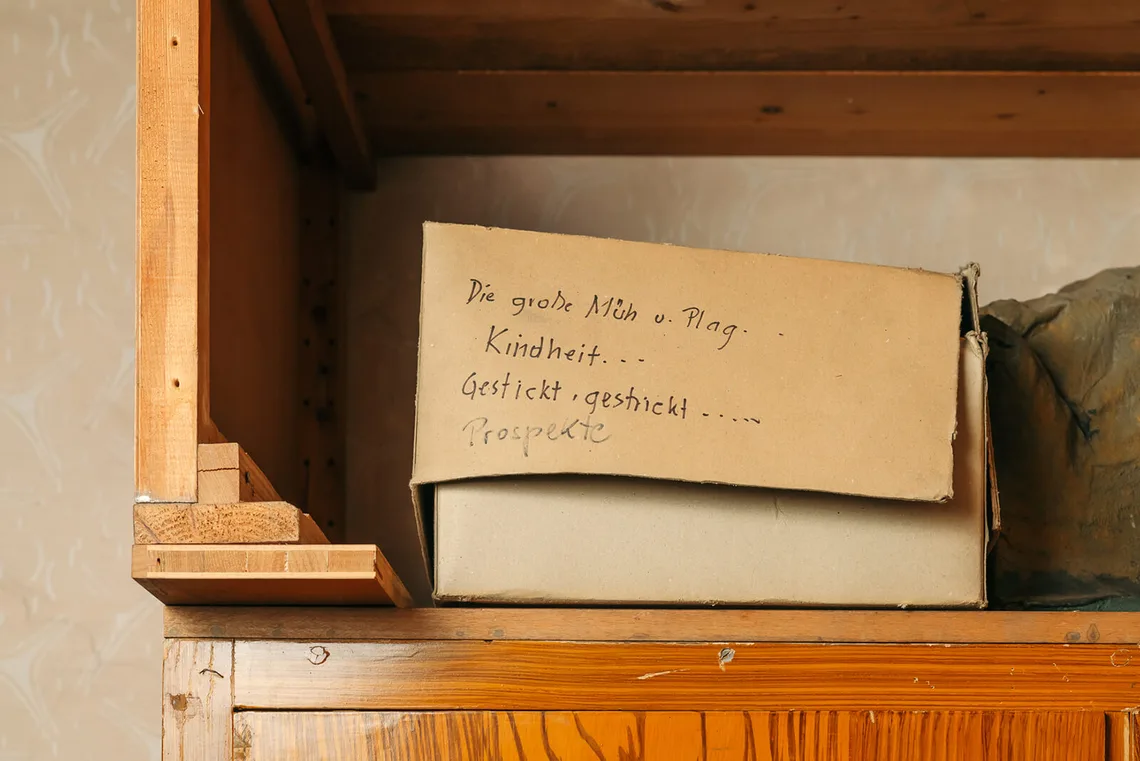 Die große Müh u. Plag. . .
Kindheit. . .
Gestickt, gestrickt . . . . .
Prospekte